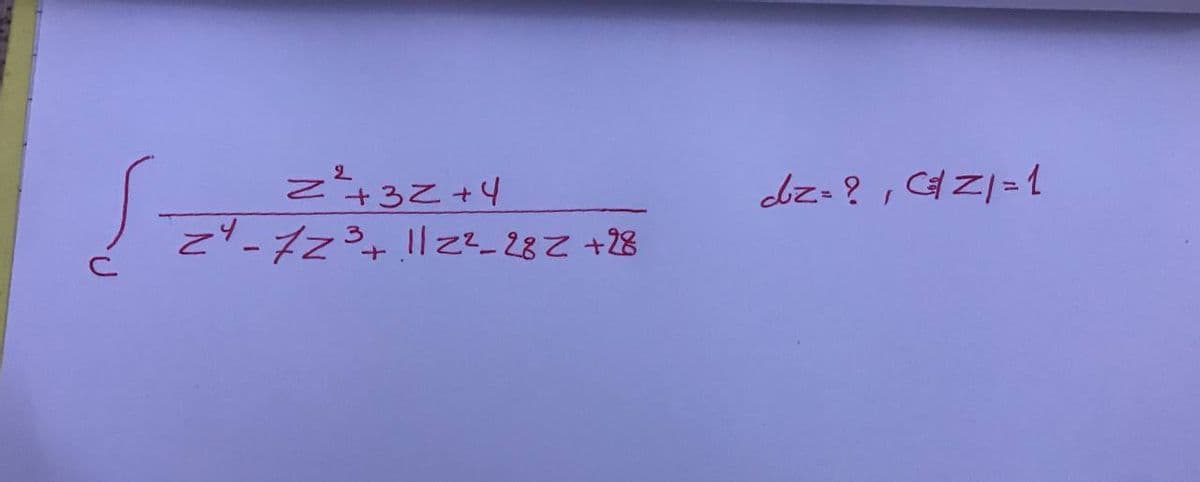 ∫_C (z²+3z+4)/(z⁴-7z³+11z²-28z+28) dz=? , C: |z|=1